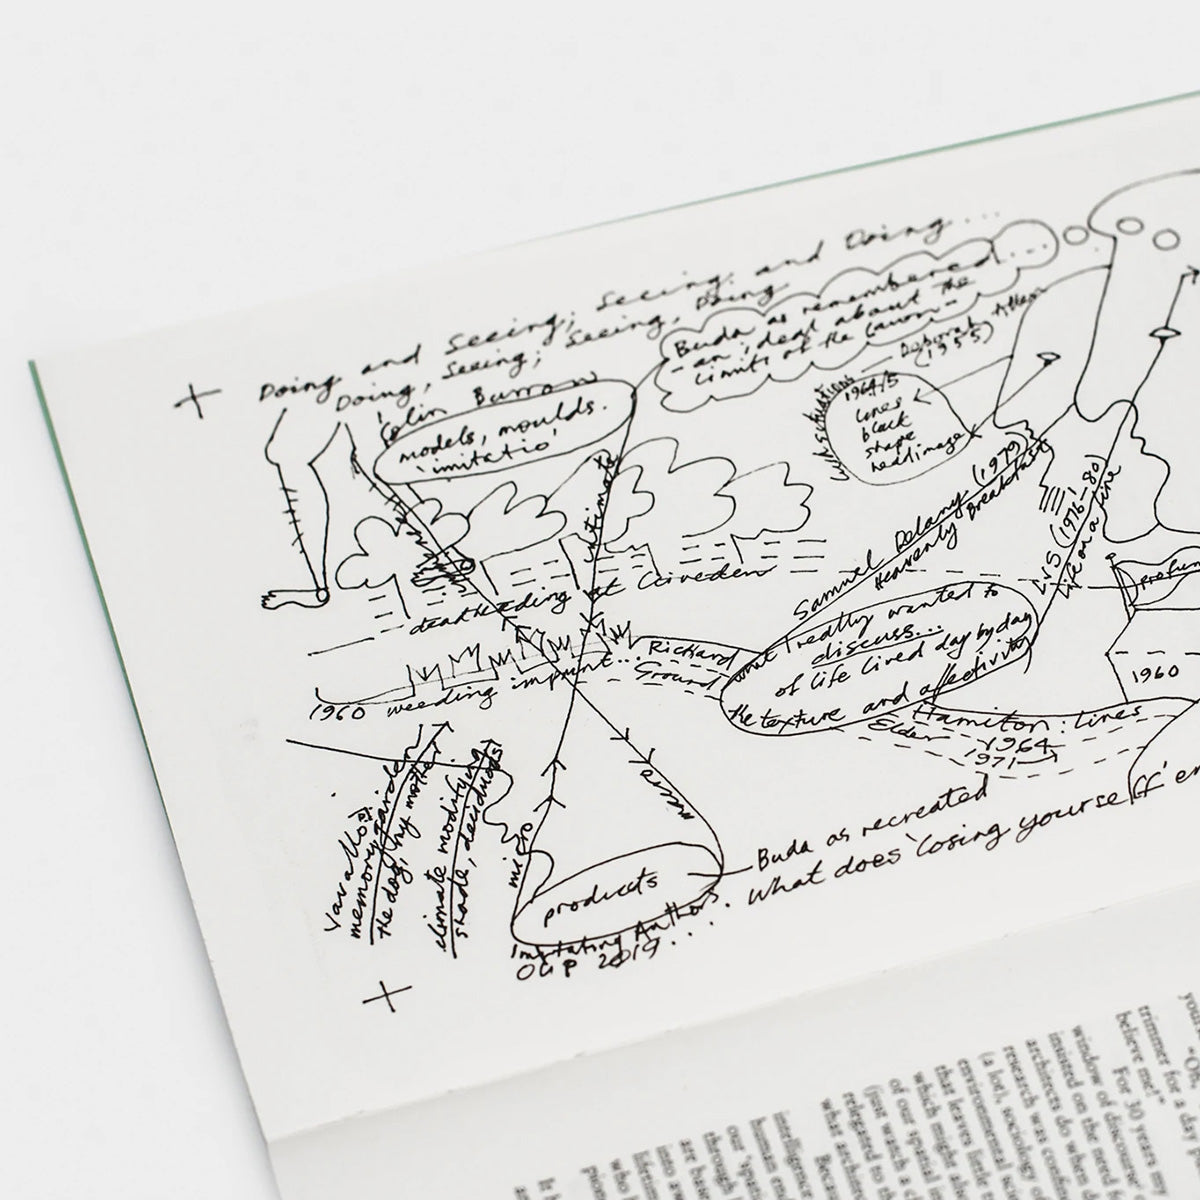 Doing and Seeing; Seeing and Doing...
Doing, Seeing; Seeing, Doing
Colin Burrow
models, moulds.
'imitatio'
Buda as remembered...
- an ideal about the
limits of the Canon -
Deborah Allen
(1955)
1964/5
lines
black
shape
head image
intimate
Samuel Delany (1979)
Heavenly Breakfast
LVS (1976-80)
Life on a line
deadheading at Cliveden
what I really wanted to
discuss...
of life lived day by day
the texture and affectivity
Richard
Ground
weeding imprint...
1960
1960
Hamilton: Lines
Elder
1964
1971
Yavallo
memory garden
the dog, my mother
climate modifying
shade, deciduous!
micro
macro
products
Imitating Authors
OUP 2019...
Buda as recreated
What does 'losing yourself' en
trimmer for a day
believe me!"
For 30 years my
window of discourse
insisted on the need
architects do when
research was
(a lot), sociology
environmental
that leaves little
which might
of our spatial
(just watch a
relegated to the
what
intelligence
human
our 'spatial
through
are
into a
lifetime
who